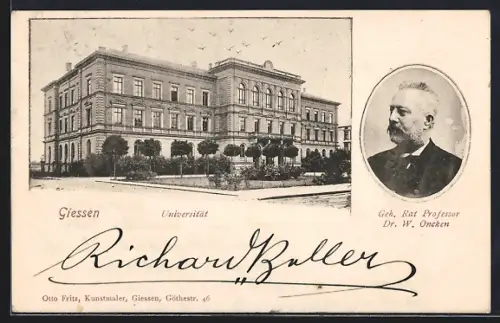 Giessen Universität
Geh. Rat Professor
Dr. W. Oncken
Richard
Otto Fritz, Kunstmaler, Giessen, Göthestr. 46